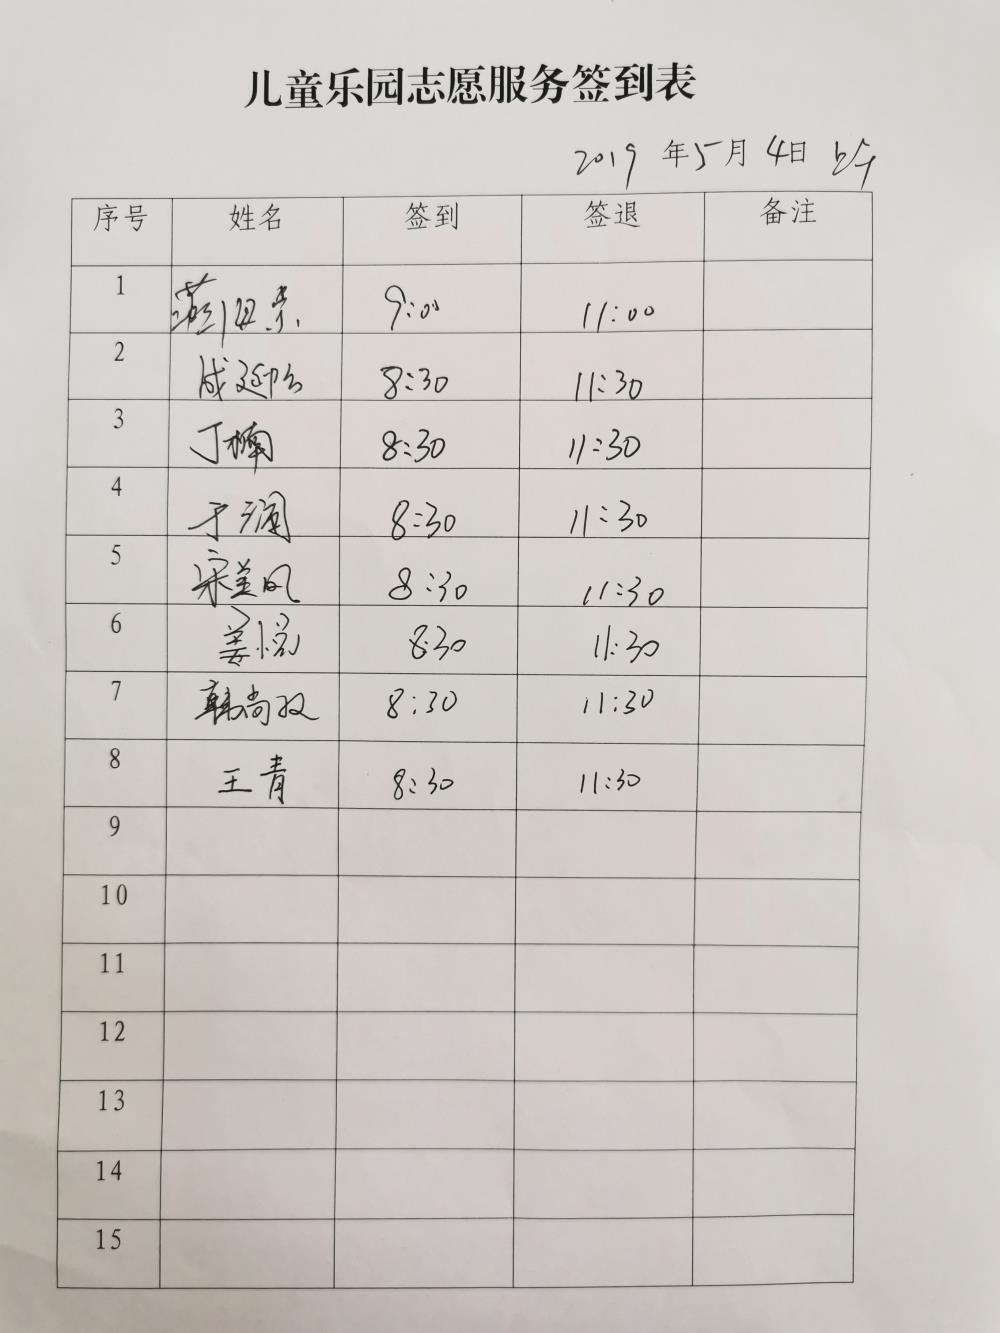 儿童乐园志愿服务签到表
2019 年 5 月 4 日
序号 姓名 签到 签退 备注
1 9:00 11:00
2 8:30 11:30
3 丁楠 8:30 11:30
4 于澜 8:30 11:30
5 宋美凤 8:30 11:30
6 姜悦 8:30 11:30
7 韩尚 8:30 11:30
8 王青 8:30 11:30
9
10
11
12
13
14
15